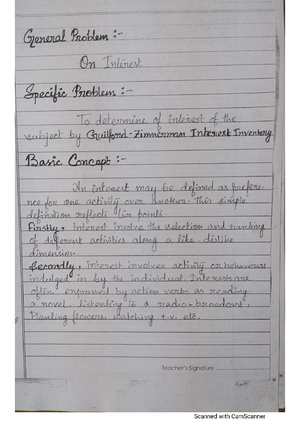 General Problem :-
On Interest
Specific Problem :-
To determine of interest of the
subject by Guilford-Zimmerman Interest Inventory
Basic Concept :-
An interest may be defined as prefere-
nce for one activity over another. This simple
defination reflects points
Firstly, interest involve the selection and ranking
of different activities along a like-dislike
dimension.
Secondly, interest involves activity or behaviours
indulged in by the individual. Interest are
often expressed by action verbs as reading
a novel, listenting to a radio-broadcast,
Planting flowers, watching t.v. etc.
Teacher's Signature
Scanned with CamScanner